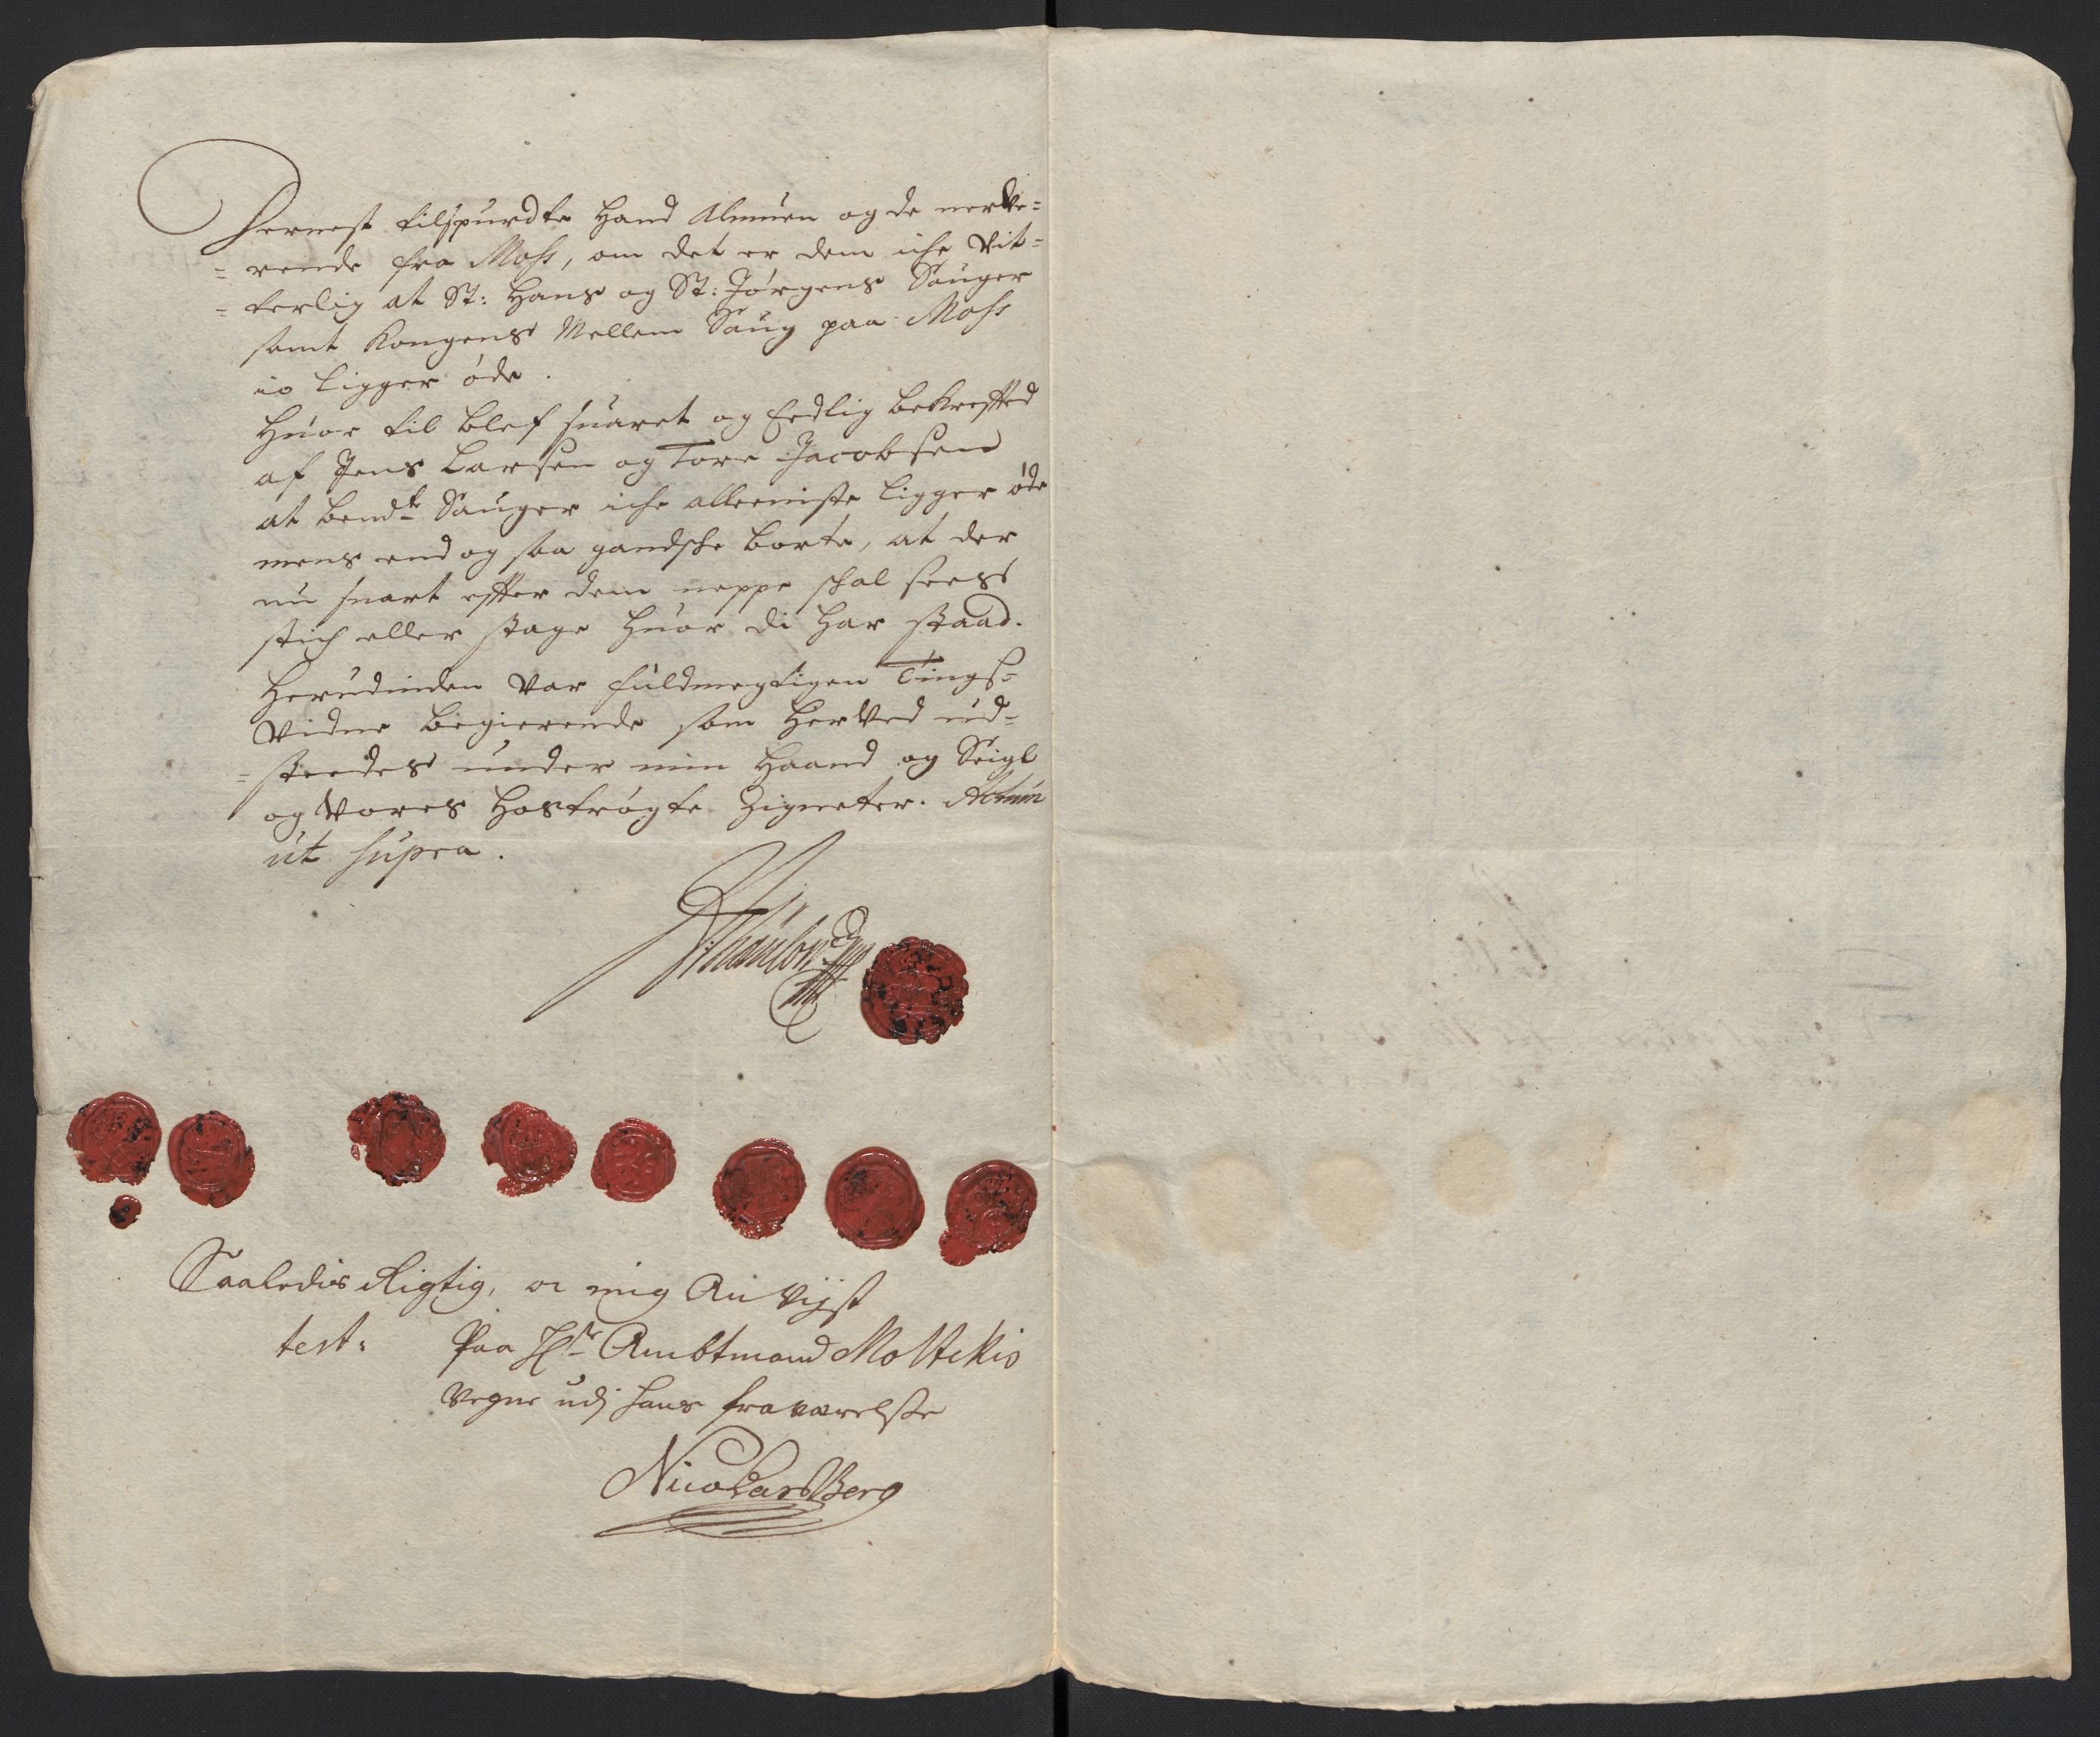 Dernest tilspurdte hand Almuen og de nerve=
=rende fra Moss, om det er dem iche vit=
=terlig at St: Hans og St: Jørgens Sauger
samt Kongens Mellem Saug paa Moss
io ligger øde.
Huor til blef suaret og Eedlig bekrefted
af Jens Larsen og Tore Jacobsen
at bemdte Sauger iche alleeniste ligger øde
mens end og saa gandsche borte, at der
nu snart effter dem neppe schal sees
stich eller stage huor di har staad.
Herudinden var fuldmegtigen Tings=
Vidne begierende som herved ud=
=steedes under min haand og Seigl
og vores hoströgte Zigneter. Actum
ut supra.
Saaledis Rigtig, er mig Anvijst
test: Paa Hr Ambtmand Moltekis
vegne udj hans fraværelsse
Nicolas Berg